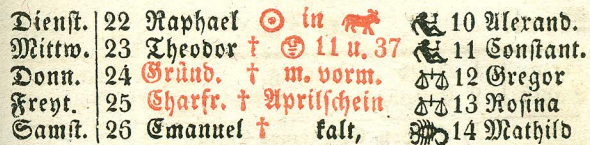 Dienſt. 22 Raphael ☉ in ♉ ♐ 10 Alexand.
Mittw. 23 Theodor † 11 u. 37 ♐ 11 Conſtant.
Donn. 24 Gründ. † m. vorm. ♎ 12 Gregor
Freyt. 25 Charfr. † Aprilſchein ♎ 13 Roſina
Samſt. 26 Emanuel † kalt, ♏ 14 Mathild